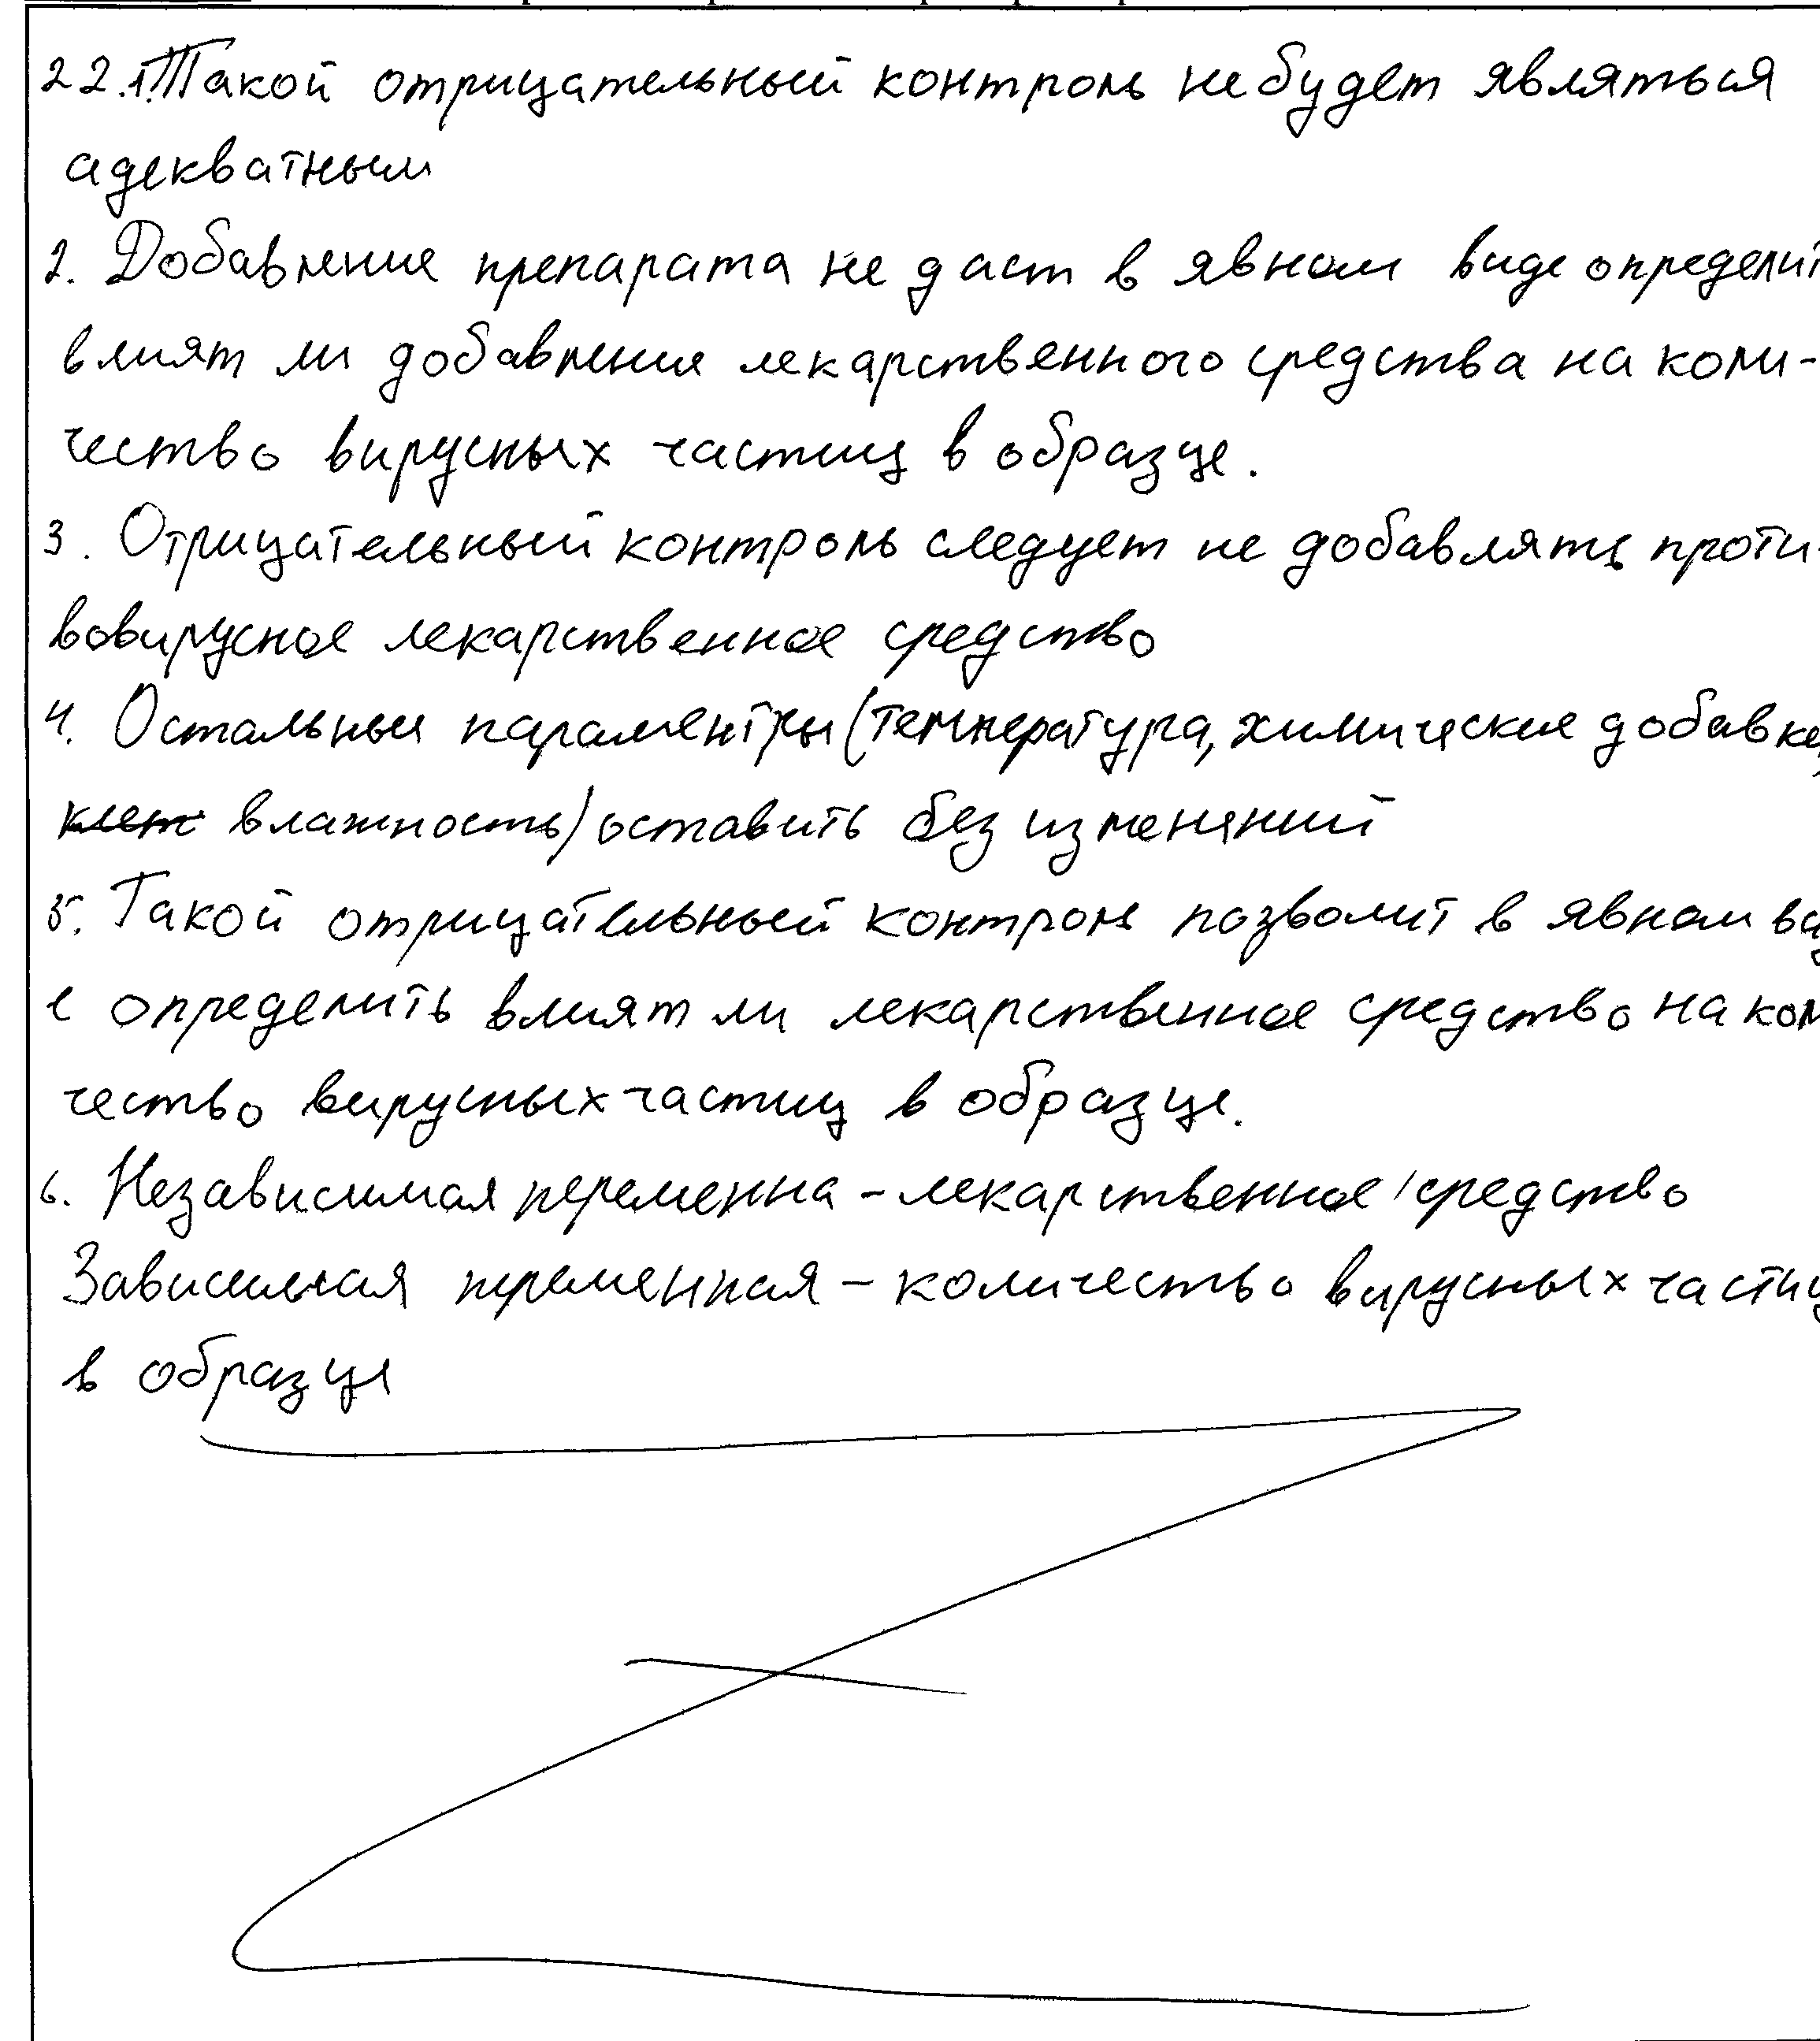 22.1. Такой отрицательный контроль не будет являться
адекватным
2. Добавление препарата не даст в явном виде определит
влият ли добавления лекарственного средства на коли-
чество вирусных частиц в образце.
3. Отрицательный контроль следует не добавлять проти-
вовирусное лекарственное средство
4. Остальные параментры (температура, химические добавки,
влажность) оставить без изменений
5. Такой отрицательный контроль позволит в явном вид
е определить влият ли лекарственное средство на кол
чество вирусных частиц в образце.
6. Независимая переменна - лекарственное средство
Зависимая переменная - количество вирусных частиц
в образце